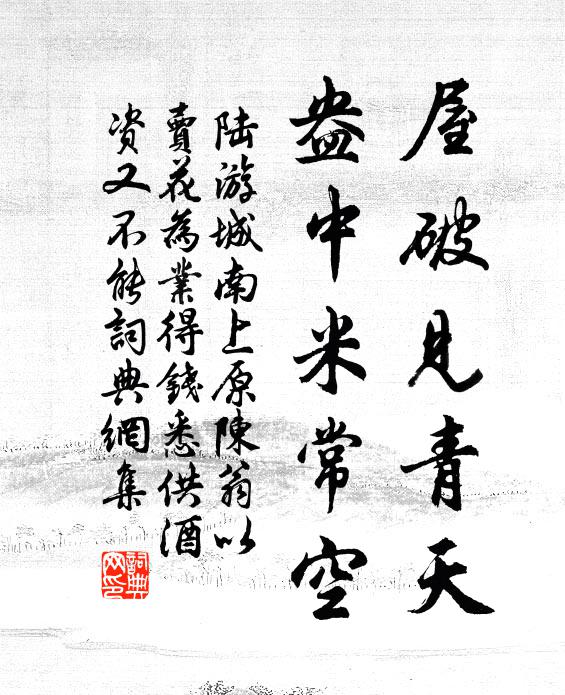 屋破見青天
盎中米常空
陸游城南上原陳翁以
賣花為業得錢悉供酒
资又不能詞典網集
詞典
网印